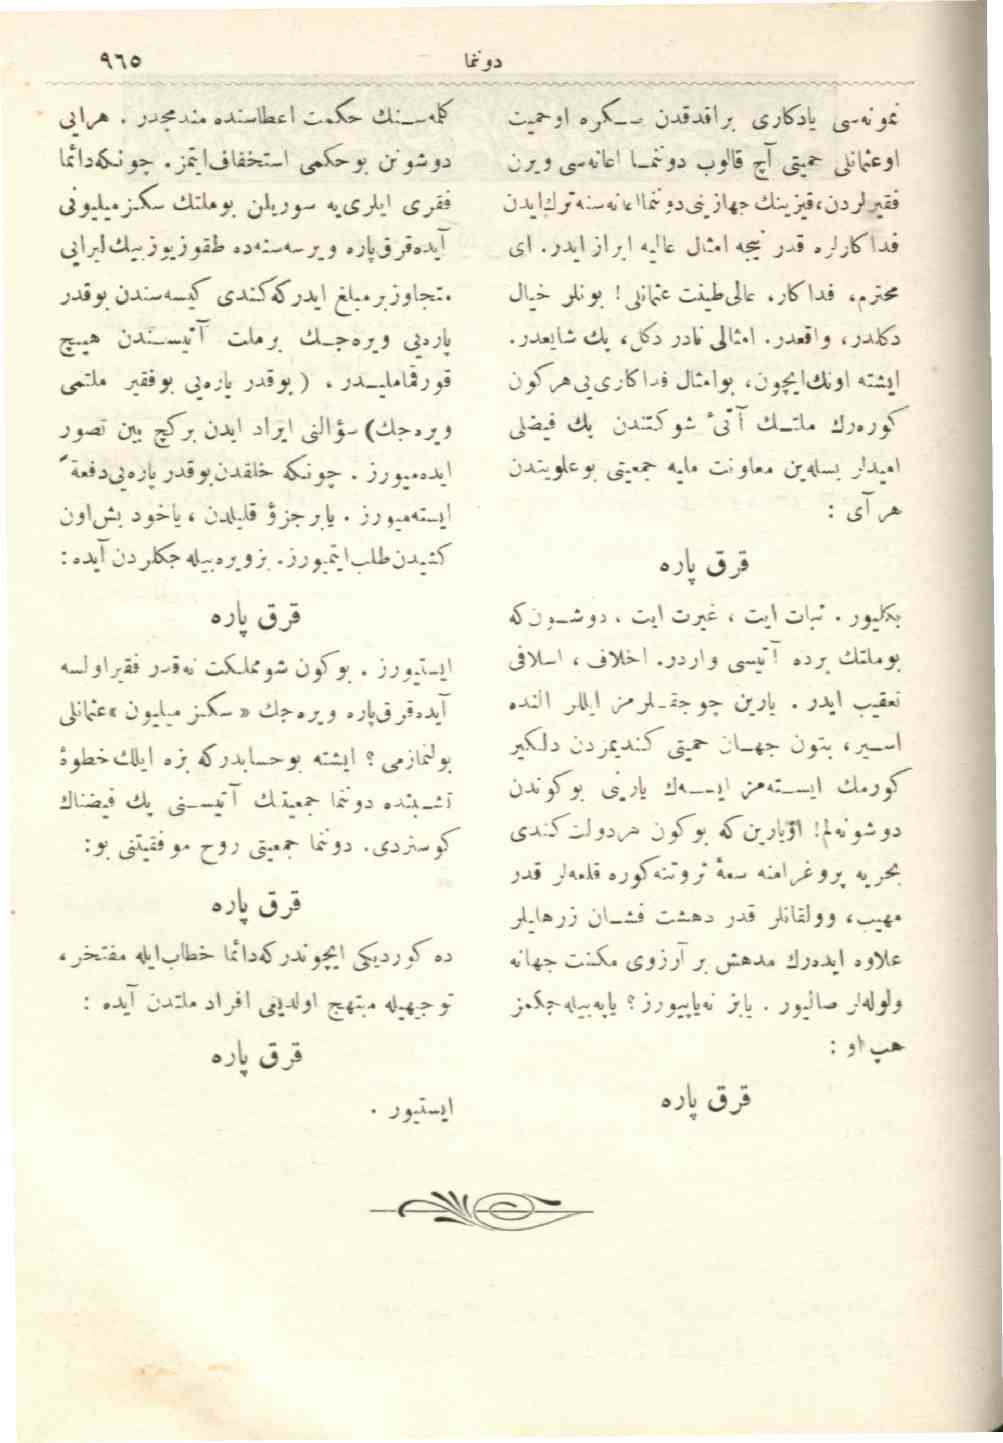 دوننما
٩٦٥
نمونه‌سی یادکاری براقدقدن صـكره اوحمیت
اوعثمانلی حمیتی آچ قالوب دوننمـا اعانه‌سی ویرن
فقیرلردن، قیزینك جهازینی دوننما اعانه‌سنه ترك ایدن
فداکارلره قدر نیجه امثال عالیه ابراز ایدر. ای
محترم، فداکار، عالی طینت عثمانلی! بونلر خیال
دکلدر، واقعدر. امثالی نادر دکل، پك شایعدر.
ایشته اونك ایچون، بوامثال فداکاری‌یی هرکون
کوره‌رك ملتـك آتیٔ شوکتندن پك فیضلی
امیدلر بسله‌ین معاونت ملیه جمعیتی بوعلویتدن
هر آی :
قرق پاره
بکلیور . ثبات ایت ، غیرت ایت ، دوشـون‌که
بوملتك برده آتیسی واردر. اخلاف ، اسلافی
تعقیب ایدر . یارین چوجقـلرمز ایللر النده
اسـیر، بتون جهـان حمیتی کندیمزدن دلکیر
کورمك ایسـته‌مز ایسـه‌ك یارینی بوکوندن
دوشونه‌لم! اویارین‌که بوکون هردولت کندی
بحریه پروغرامنه سعهٔ ثروتنه کوره قلعه‌لر قدر
مهیب، وولقانلر قدر دهشت فشـان زرهلیلر
علاوه ایده‌رك مدهش بر آرزوی مکنت جهانه
ولوله‌لر صالیور . یابز نه‌یاپیورز؟ یاپه‌بیله‌جکمز
هپ او :
قرق پاره
کلمه‌سـنك حکمت اعطاسنده مندمجدر . هرایی
دوشونن بوحکمی استخفاف ایتمز. چونکه دائما
فقری ایلری‌یه سوریلن بوملتك سکزمیلیونی
آیده قرق پاره ویرسه سنه‌ده طقوزیوزبیك لیرایی
متجاوز برمبلغ ایدرکه کندی کیسه‌سندن بوقدر
پاره‌یی ویره‌جـك برملت آتیسـندن هیـچ
قورقماملیـدر . (بوقدر پاره‌یی بوفقیر ملتمی
ویره‌جك) سؤالنی ایراد ایدن برکچ بین تصور
ایده‌میورز . چونکه خلقدن بوقدر پاره‌یی دفعةً
ایسته‌میورز . یابر جزؤ قلیلدن ، یاخود بش اون
کشیدن طلب ایتمیورز. بزویره بیله‌جکلردن آیده :
قرق پاره
ایستیورز . بوکون شومملکت نه‌قدر فقیر اولسه
آیده قرق پاره ویره‌جك «سکز میلیون» عثمانلی
بولنمازمی؟ ایشته بوحسابدرکه بزه ایلك خطوهٔ
تشـبثده دوننما جمعیتنك آتیسـنی پك فیضناك
کوستردی. دوننما جمعیتی روح موفقیتنی بو:
قرق پاره
ده کوردیکی ایچوندرکه دائما خطاب ایله مفتخر،
توجهیله مبتهج اولدیغی افراد ملتدن آیده :
قرق پاره
ایستیور .